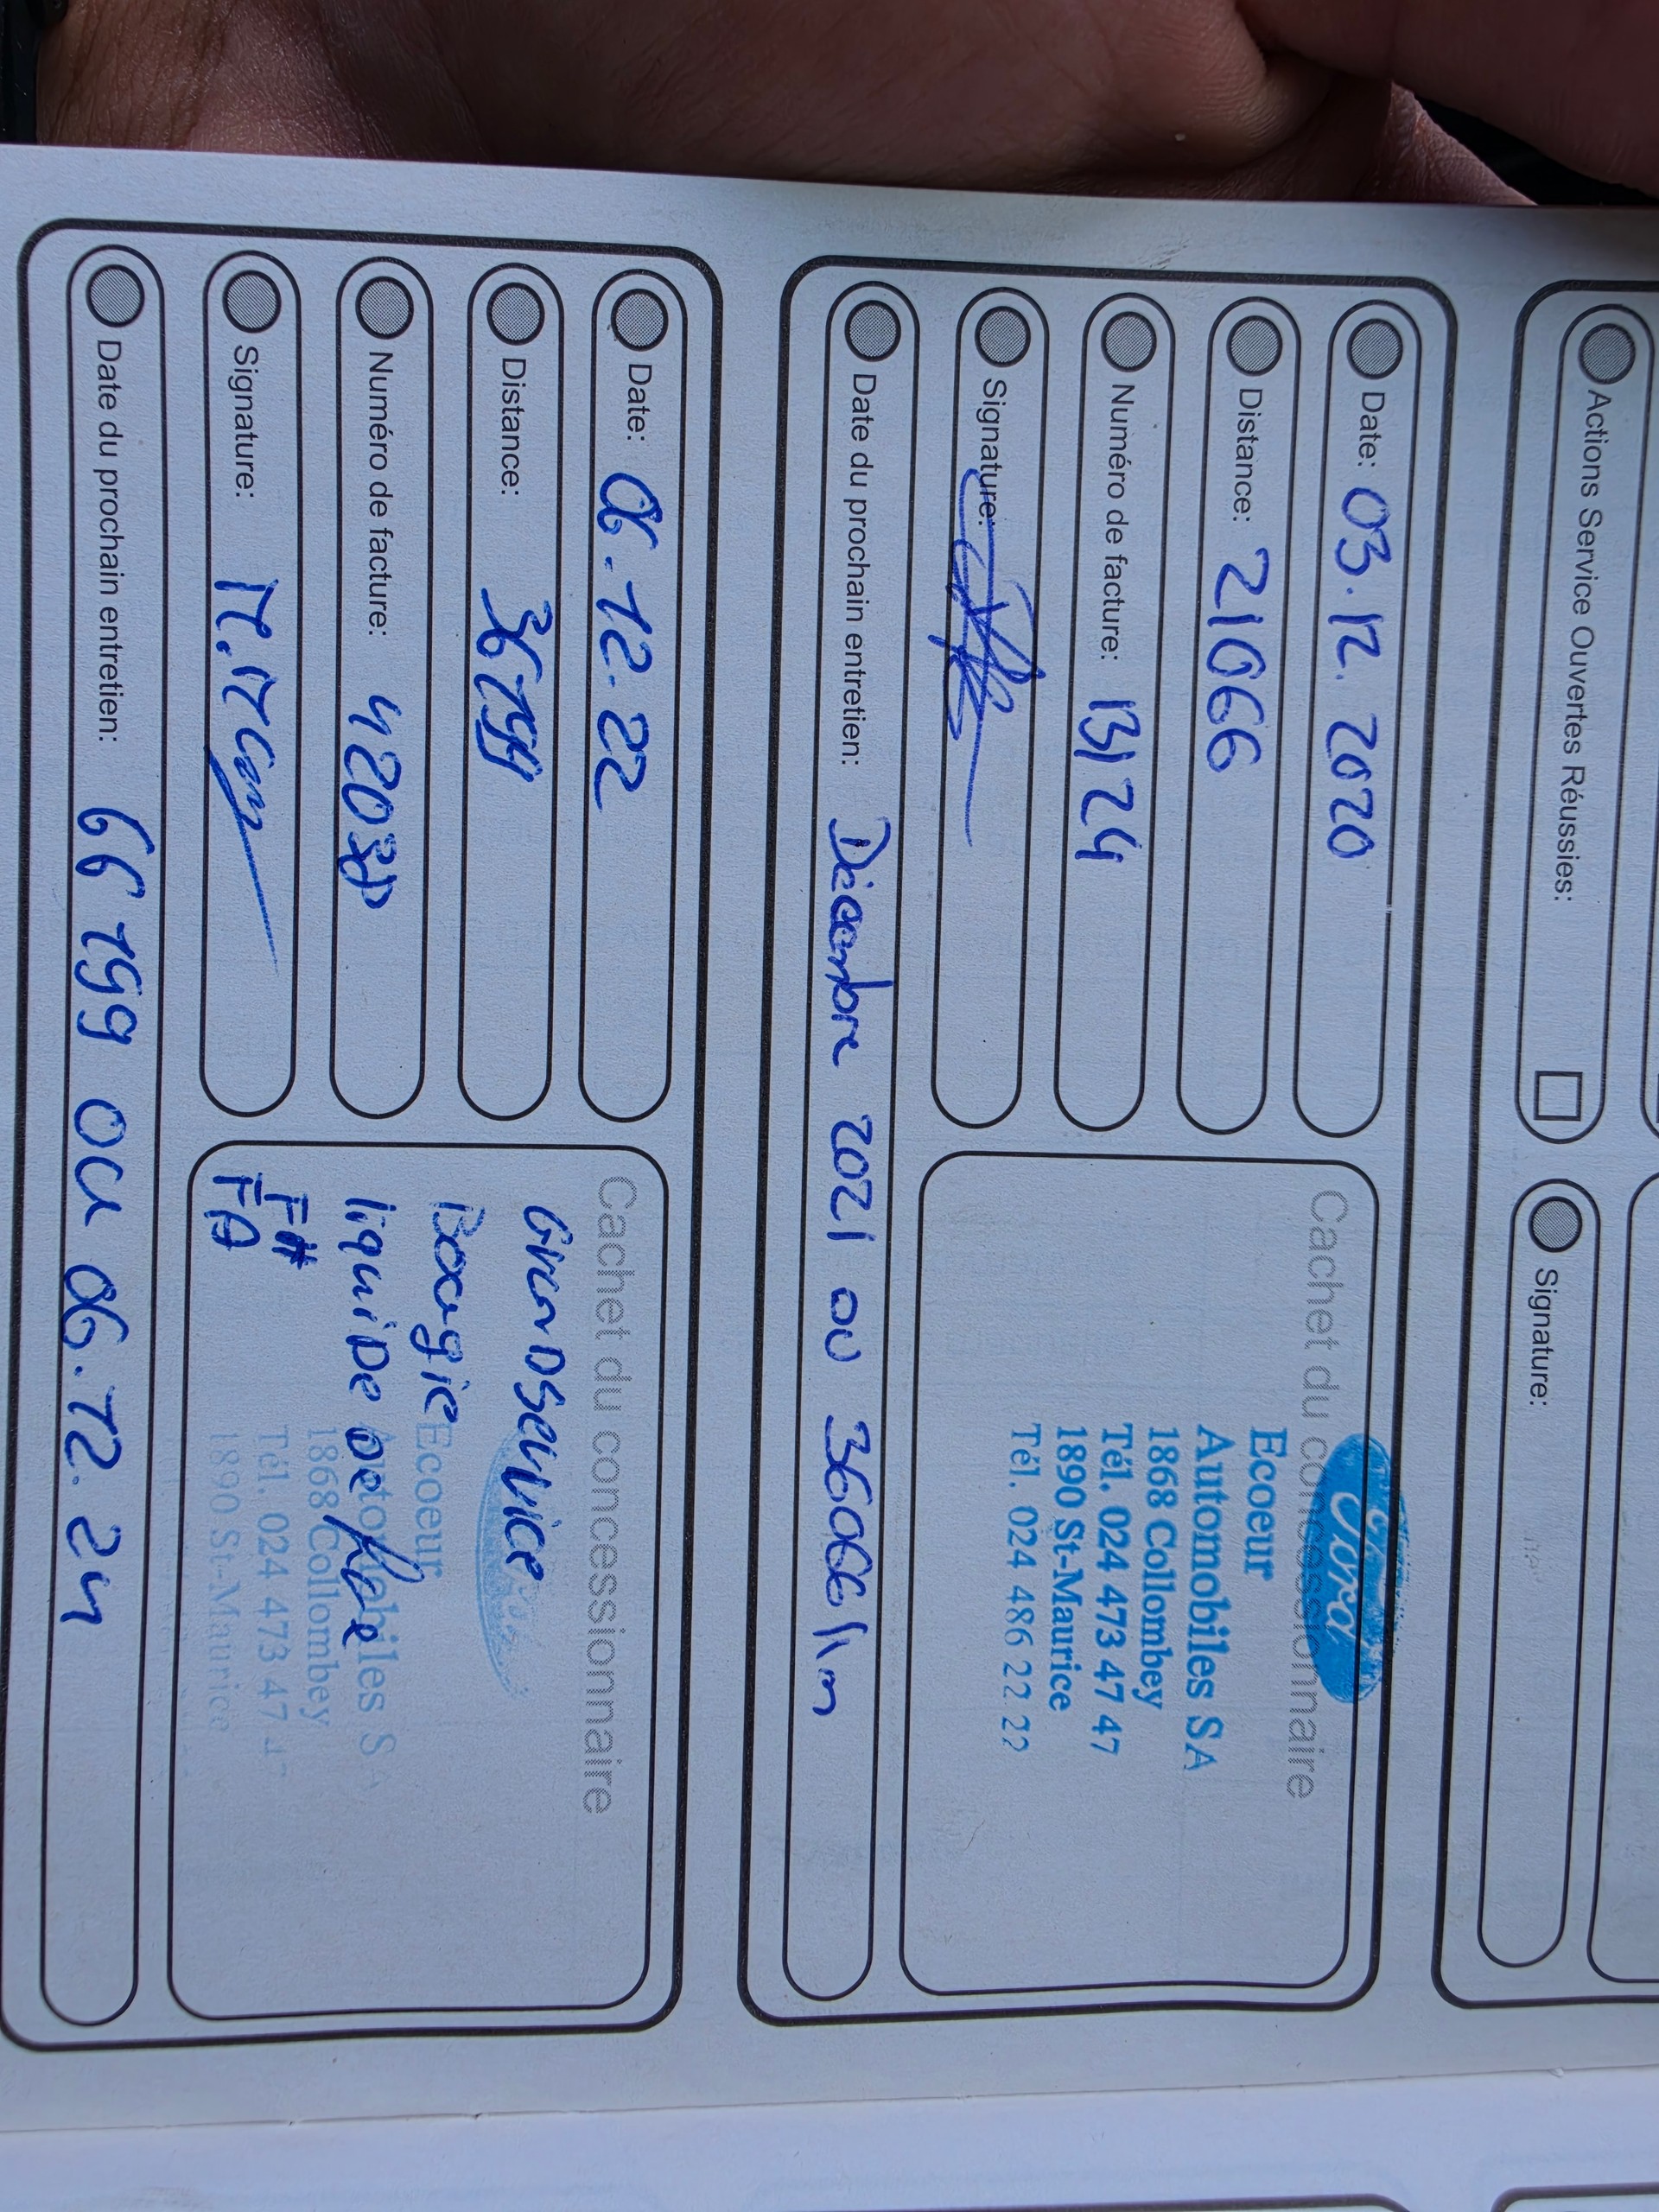 Actions Service Ouvertes Réussies:
Signature:
Date: 03.12.2020
Distance: 21066
Numéro de facture: 13124
Signature:
Cachet du concessionnaire
Ford
Ecoeur
Automobiles SA
1868 Collombey
Tél. 024 473 47 47
1890 St-Maurice
Tél. 024 486 22 22
Date du prochain entretien: Décembre 2021 ou 36066 km
Date: 06.12.22
Distance:
Numéro de facture:
Signature:
Cachet du concessionnaire
Grand service
Bougie
liquide de
FH
FA
Ecoeur
Automobiles SA
1868 Collombey
Tél. 024 473 47
1890 St-Maurice
Date du prochain entretien: 66 199 ou 06.12.24